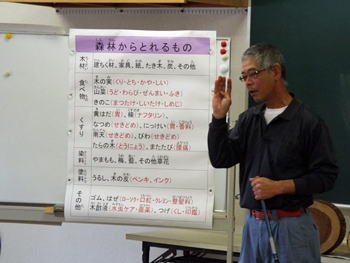 森林からとれるもの
木材 建ちく材、家具、紙、たき木、炭、その他
食べ物 木の実(くり・とち・かや・しい)
山菜(うど・わらび・ぜんまい・ふき)
きのこ(まつたけ・しいたけ・しめじ)
くすり 黄はだ(胃)、樟(ナフタリン)、
なつめ(せきどめ)、にっけい(胃・香料)
南天(せきどめ)、びわ(せきどめ)
たらの木(とうにょう)、またたび(腰痛)
染料 やまもも、梅、藍、その他草花
塗料 うるし、木の皮(ペンキ、インク)
その他 ゴム、はぜ(ローソク・口紅・クレヨン・整髪料)
木酢液(水虫ケア・農薬)、つげ(くし・印鑑)